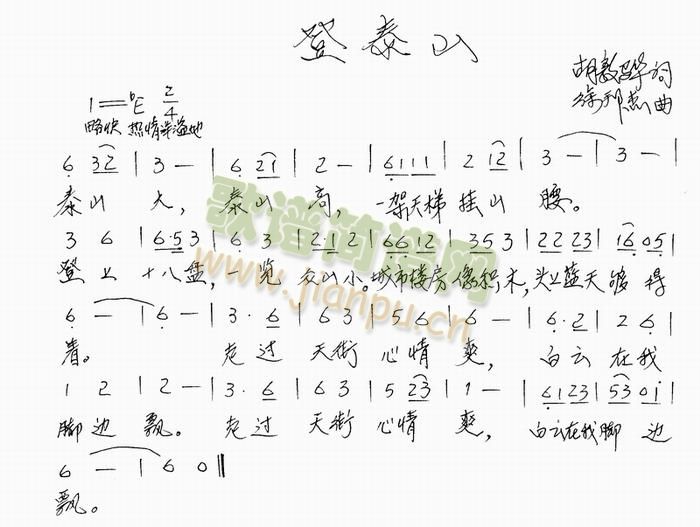 登泰山
胡敦骅词
徐邦杰曲
1=♭E 2/4
略快 热情洋溢地
6 32 | 3 — | 6 21 | 2 — | 6111 | 2 12 | 3 — | 3 — |
泰山 大, 泰山 高, 一架天梯 挂山 腰。
3 6 | 6·5 3 | 6· 3 | 2·1 2 | 6612 | 35 3 | 22 23 | 16 05 |
登上 十八盘, 一览 众山小。城市楼房像积木, 头上蓝天够得
6 — | 6 — | 3· 6 | 6 3 | 5 6 | 6 — | 6· 2 | 2 6 |
着。 走过 天街 心情 爽, 白云 在我
1 2 | 2 — | 3· 6 | 6 3 | 5 23 | 1 — | 6123 | 53 01 |
脚边 飘。 走过 天街 心情 爽, 白云在我脚 边
6 — | 6 0 ‖
飘。
歌谱简谱网
www.jianpu.cn